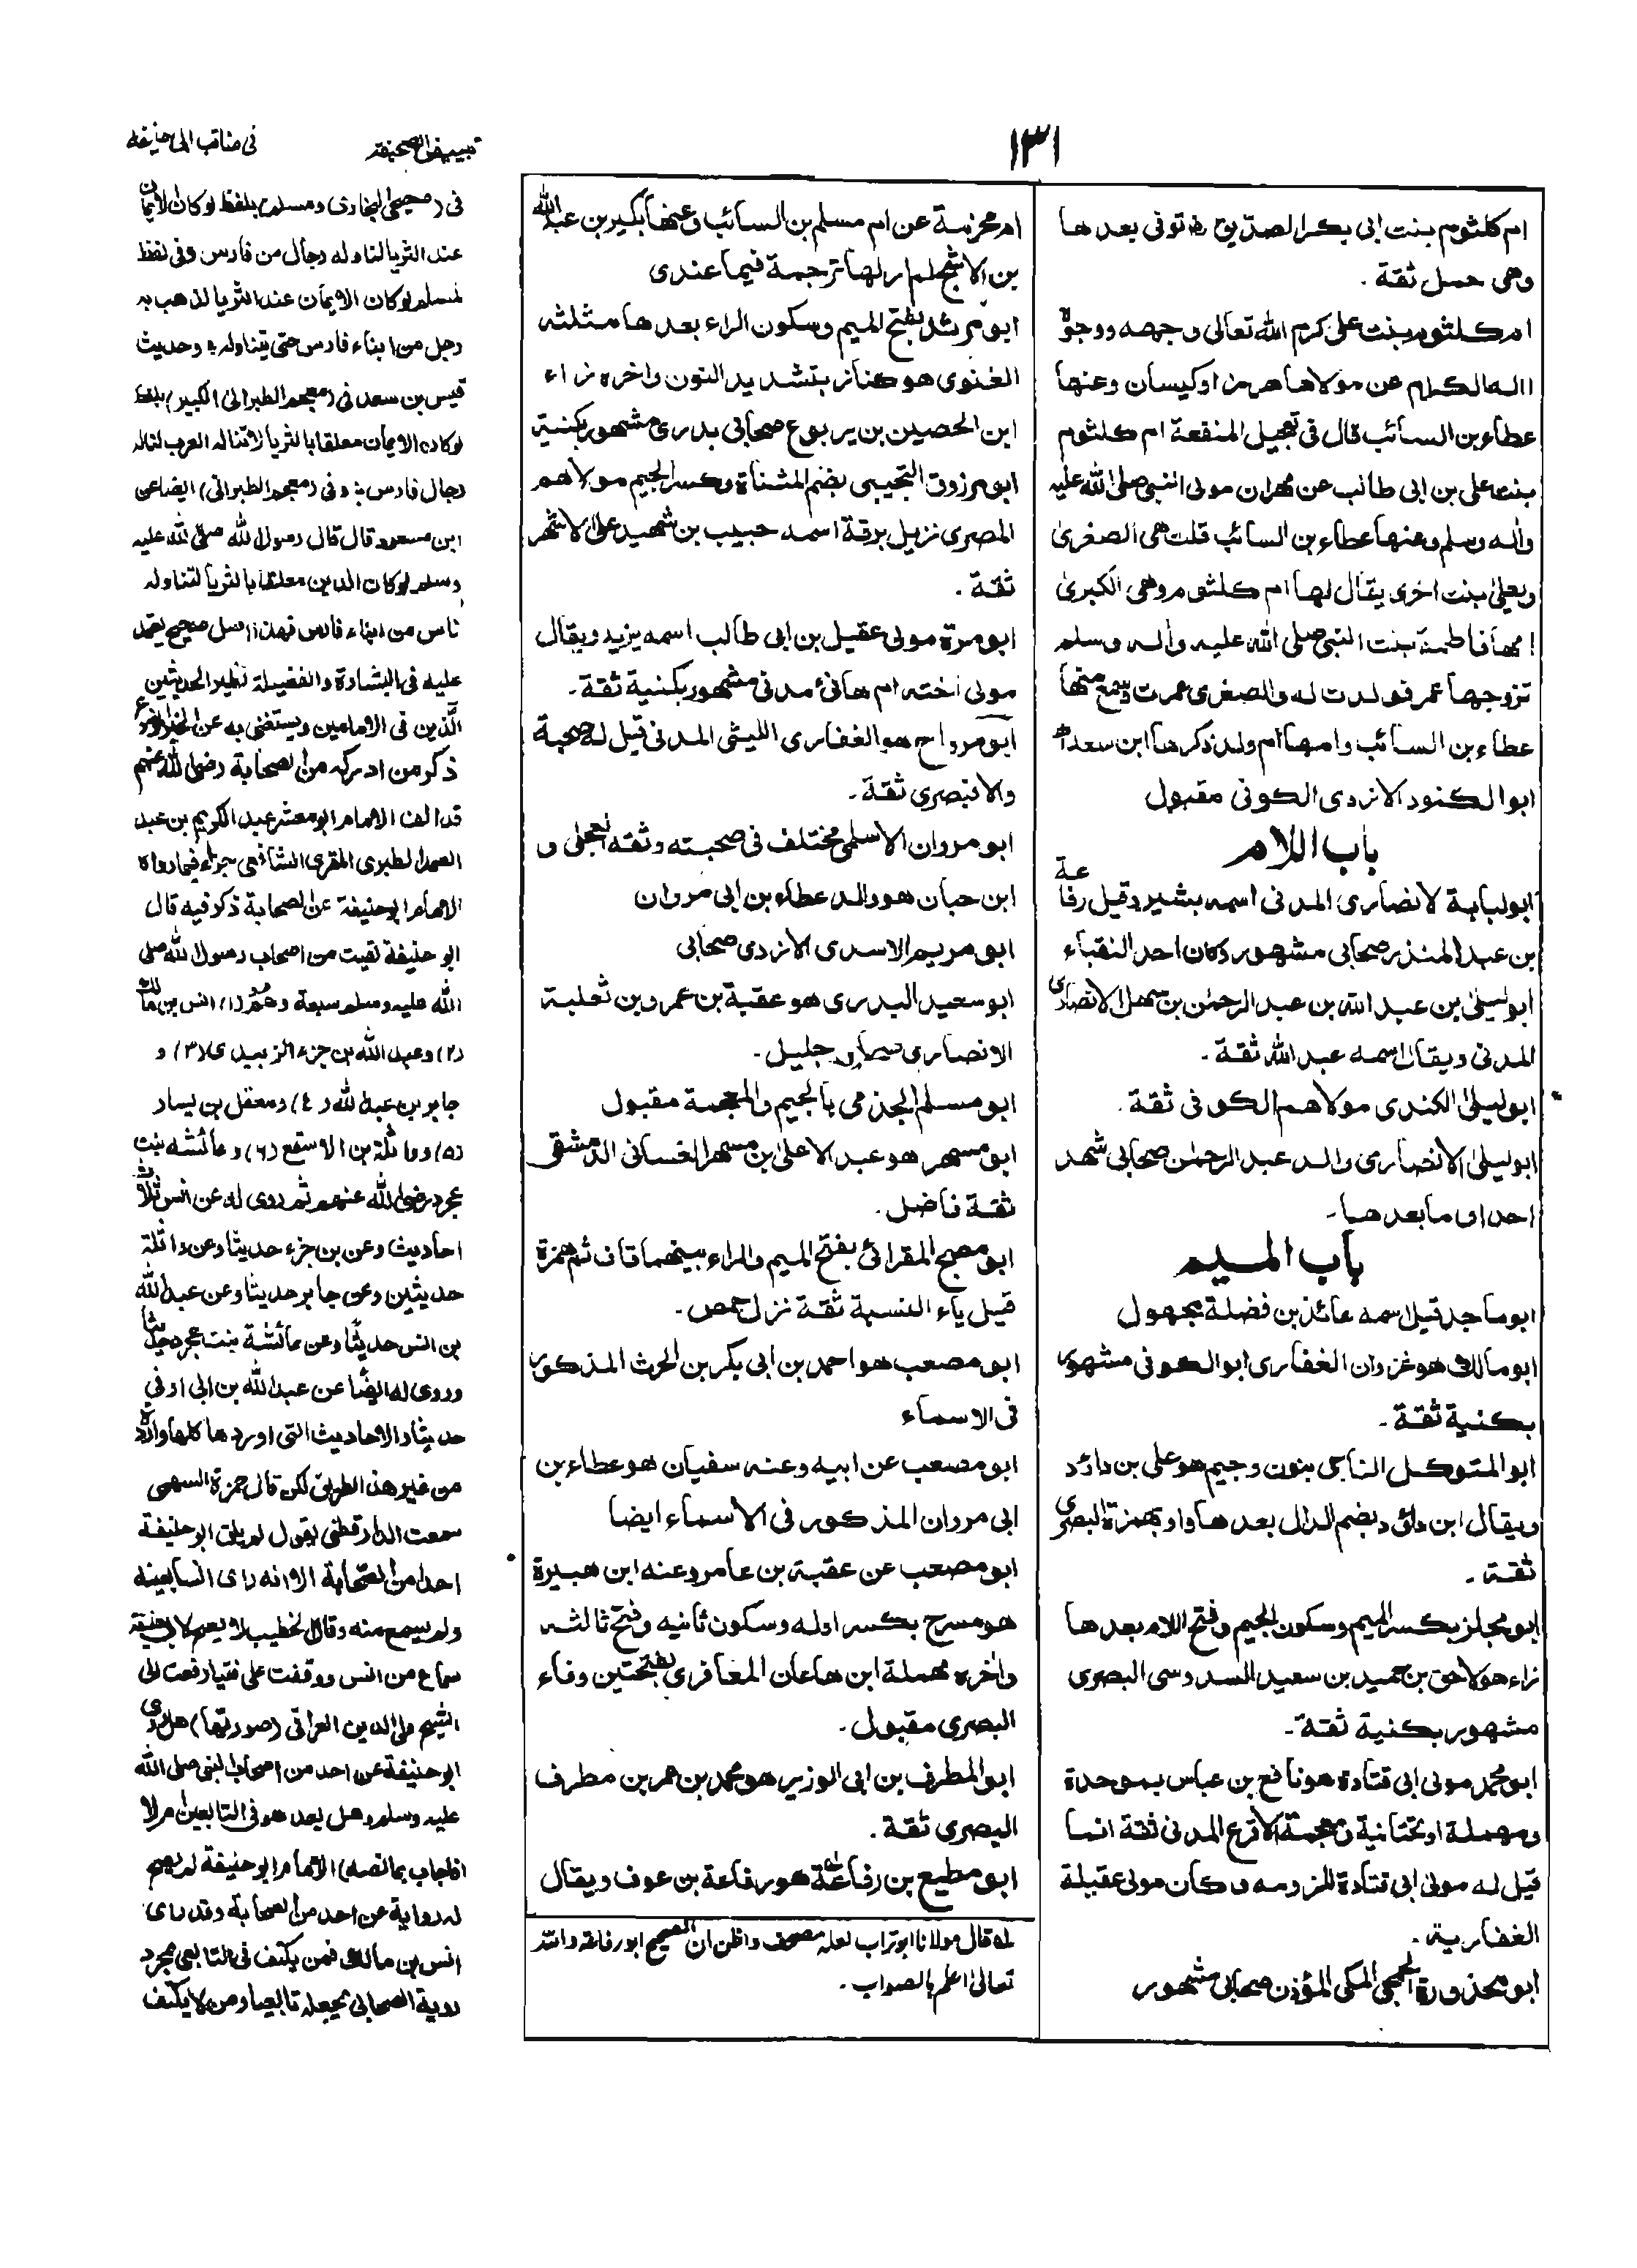 ١٣١
ام كلثوم بنت ابى بكر الصديق رض توفى بعدها
وهى حمل ثقة .
ام كلثوم بنت على كرم الله تعالى وجهه ووجوه
اله الكرام عن مولاها هرمز او كيسان وعنها
عطاء بن السائب قال فى تعجيل المنفعة ام كلثوم
بنت على بن ابى طالب عن مهران مولى النبى صلى الله عليه
واله وسلم وعنها عطاء بن السائب قلت هى الصغرى
وبعلى بنت اخرى يقال لها ام كلثوم وهى الكبرى
امها فاطمة بنت النبى صلى الله عليه واله وسلم
تزوجها عمر فولدت له والصغرى عمرت وسمع منها
عطاء بن السائب وامها ام ولد ذكرها ابن سعد اه
ابو الكنود الازدى الكوفى مقبول
باب اللام
ابو لبابة لانصارى المدنى اسمه بشير وقيل رفاعة
بن عبد المنذر صحابى مشهور وكان احد النقباء
ابو ليلى بن عبد الله بن عبد الرحمن بن سهل الانصارى
المدنى ويقال اسمه عبد الله ثقة .
ابو ليلى الكندى مولاهم الكوفى ثقة .
ابو ليلى الانصارى والد عبد الرحمن صحابى شهد
احدا وما بعدها .
باب الميم
ابو ماجد قيل اسمه عائذ بن فضلة مجهول
ابو مالك هو غزوان الغفارى ابو الكوفى مشهور
بكنية ثقة .
ابو المتوكل الناجى بنون وجيم هو على بن داؤد
ويقال ابن دؤاد بضم الدال بعدها واو بهمزة البصرى
ثقة .
ابو مجلز بكسر الميم وسكون الجيم وفتح اللام بعدها
زاء هو لاحق بن حميد بن سعيد السدوسى البصرى
مشهور بكنية ثقة .
ابو محمد مولى ابى قتادة هو نافع بن عباس بموحدة
ومهملة او بتحتانية ومعجمة الاقرع المدنى ثقة انما
قيل له مولى ابى قتادة للزومه وكان مولى عقيلة
الغفارية .
ابو محذورة الجمحى المكى المؤذن صحابى مشهور
ام مخرمة عن ام مسلم بن السائب وعنها بكير بن عبد الله
بن الاشج لم ار لها ترجمة فيما عندى
ابو مرثد بفتح الميم وسكون الراء بعدها مثلثه
الغنوى هو كناز بتشديد النون واخره زاء
ابن الحصين بن يربوع صحابى بدرى مشهور بكنية
ابو مرزوق التجيبى بضم المثناة وكسر الجيم مولاهم
المصرى نزيل برقة اسمه حبيب بن شهيد على الاشهر
ثقة .
ابو مرة مولى عقيل بن ابى طالب اسمه يزيد ويقال
مولى اخته ام هانئ مدنى مشهور بكنية ثقة .
ابو مرواح هو الغفارى الليثى المدنى قيل له صحبة
والا فبصرى ثقة .
ابو مروان الاسلمى مختلف فى صحبته وثقه العجلى و
ابن حبان هو والد عطاء بن ابى مروان
ابو مريم الاسدى الازدى صحابى
ابو سعيد البدرى هو عقبة بن عمرو بن ثعلبة
الانصارى جليل .
ابو مسلم الجذمى بالجيم والمعجمة مقبول
ابو مسهر هو عبد الاعلى بن مسهر الغسانى الدمشقى
ثقة فاضل .
ابو مصبح المقرائى بفتح الميم والراء بينهما قاف ثم همزة
قبل ياء النسبة ثقة نزل حمص .
ابو مصعب هو احمد بن ابى بكر بن الحرث المذكور
فى الاسماء
ابو مصعب عن ابيه وعنه سفيان هو عطاء بن
ابى مروان المذكور فى الاسماء ايضا
ابو مصعب عن عقبة بن عامر وعنه ابن هبيرة
هو مسرح بكسر اوله وسكون ثانيه وفتح ثالثه
واخره مهملة ابن هاعان المعافرى بفتحتين وفاء
البصرى مقبول .
ابو المطرف بن ابى الوزير هو محمد بن عمر بن مطرف
البصرى ثقة .
ابو مطيع بن رفاعة هو رفاعة بن عوف ويقال
له قال مولانا ابو تراب لعله مصحف واظن ان الصحيح ابو رفاعه والله
تعالى اعلم بالصواب .
تبييض الصحيفة فى مناقب ابى حنيفة
فى (صحيحى البخارى ومسلم) بلفظ لو كان الايمان
عند الثريا لتناوله رجال من فارس وفى لفظ
لمسلم لو كان الايمان عند الثريا لذهب به
رجل من ابناء فارس حتى يتناوله ۔ وحديث
قيس بن سعد فى (معجم الطبرانى الكبير) بلفظ
لو كان الايمان معلقا بالثريا لا تناله العرب لناله
رجال فارس ۔ وفى (معجم الطبرانى) ايضا عن
ابن مسعود قال قال رسول الله صلى الله عليه
وسلم لو كان الدين معلقا بالثريا لتناوله
ناس من ابناء فارس فهذا اصل صحيح يعتمد
عليه فى البشارة والفضيلة نظير الحديثين
الذين فى الامامين ويستغنى به عن الخبر الموضوع
ذكر من ادركه من الصحابة رضى الله عنهم
قد الف الامام ابو معشر عبد الكريم بن عبد
الصمد الطبرى المقرى الشافعى جزاء فيما رواه
الامام ابو حنيفة عن الصحابة ذكر فيه قال
ابو حنيفة لقيت من اصحاب رسول الله صلى
الله عليه وسلم سبعة وهم (١) انس بن مالك
(٢) وعبد الله بن جزء الزبيدى (٣) و
جابر بن عبد الله (٤) ومعقل بن يسار
(٥) وواثلة بن الاسقع (٦) وعائشه بنت
عجرد رضى الله عنهم ثم روى له عن انس ثلاث
احاديث وعن بن جزء حديثا وعن واثلة
حديثين وعن جابر حديثا وعن عبد الله
بن انس حديثا وعن عائشة بنت عجرد حديثا
وروى له ايضا عن عبد الله بن ابى اوفى
حديثا والاحاديث التى اوردها كلها واردة
من غير هذ الطريق لكن قال حمزة السهمى
سمعت الدارقطنى يقول لم يلق ابو حنيفة
احدا من الصحابة الا انه راى انسا بعينه
ولم يسمع منه وقال الخطيب لا يصح لابى حنيفة
سماع من انس ووقفت على فتيا رفعت الى
الشيخ ولى الدين العراقى (صورتها) هل روى
ابو حنيفة عن احد من اصحاب النبى صلى الله
عليه وسلم وهل يعد هو فى التابعين ام لا
(فاجاب بما نصه) الامام ابو حنيفة لم يصح
له رواية عن احد من الصحابة وقد راى
انس بن مالك فمن يكتفى فى التابعى بمجرد
روية الصحابى يجعله تابعيا ومن لا يكتف